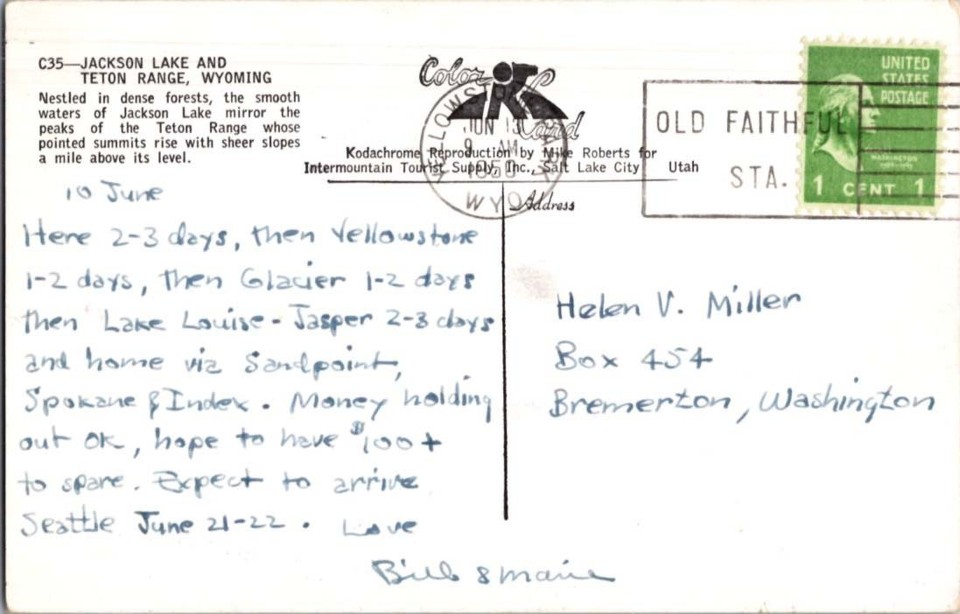 C35—JACKSON LAKE AND
TETON RANGE, WYOMING
Nestled in dense forests, the smooth
waters of Jackson Lake mirror the
peaks of the Teton Range whose
pointed summits rise with sheer slopes
a mile above its level.
Color
Land
Kodachrome Reproduction by Mike Roberts for
Intermountain Tourist Supply, Inc., Salt Lake City Utah
Address
JUN 13
9 AM
1950
WYO
OLD FAITHFUL
STA.
UNITED
STATES
POSTAGE
WASHINGTON
1 CENT 1
10 June
Here 2-3 days, then Yellowstone
1-2 days, then Glacier 1-2 days
then Lake Louise - Jasper 2-3 days
and home via Sandpoint,
Spokane & Index. Money holding
out OK, hope to have $100+
to spare. Expect to arrive
Seattle June 21-22. Love
Bill &
Helen V. Miller
Box 454
Bremerton, Washington